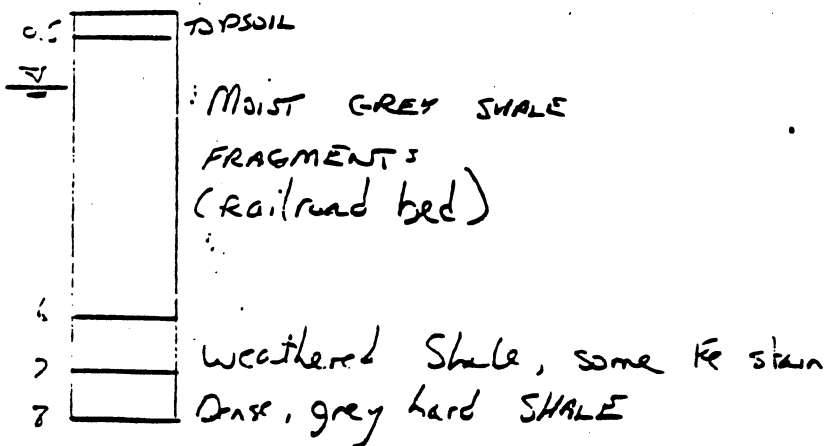 0.5 TOPSOIL
MOIST GREY SHALE
FRAGMENTS
(Railroad bed)
6
7 Weathered Shale, some Fe stain
8 Dense, grey hard SHALE